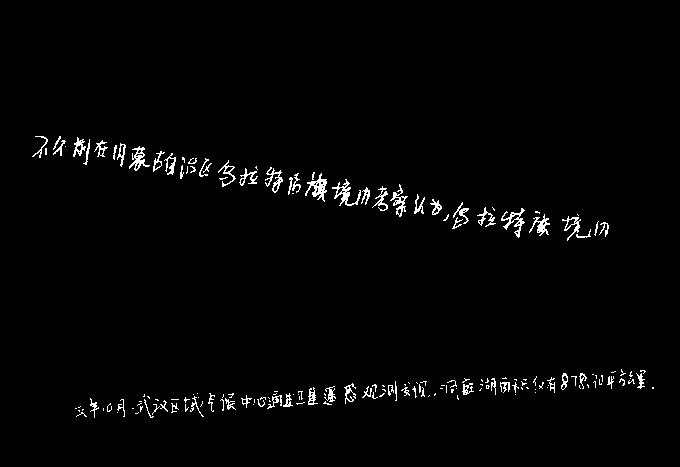 不久前在内蒙古自治区乌拉特后旗境内考察认为,乌拉特旗境内
去年10月武汉区域气候中心通过卫星遥感观测发现,洞庭湖面积仅有878.30平方公里.